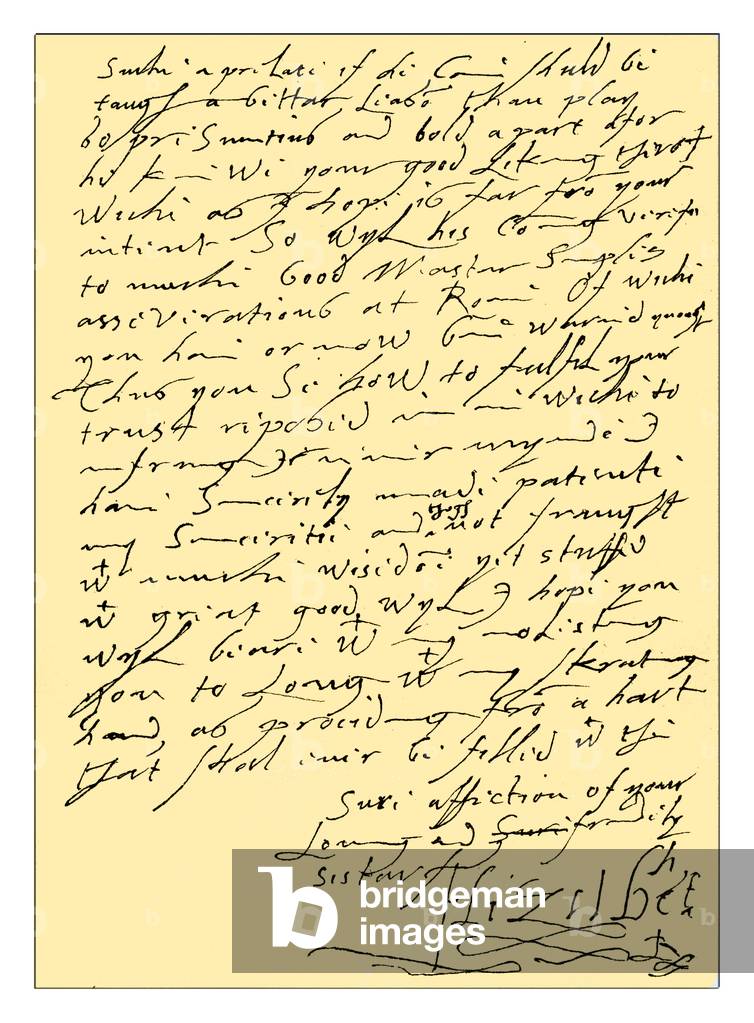 Suche a prelate if he come shuld be
taught a bettar leasō than play
so presumtius and bold a part afor
he knewe your good liking therof
Wiche as I hope is far frō your
intent So wyl his coming verefie
to muche Good Mastar Simples
asseverations at Rome Of wiche
you have or now bene warned ynough
Thus you se how to fulfil your
trust reposed in me wiche to
infring I never mynde I
have Sincerely made patente
my Sinceritie and thogh not fraught
wt muche wisedōe yet stuffed
wt great good wyl I hope you
wyl beare wt my molesting
you to Long wt my skrating
hand, as proceding frō a hart
that shal ever be filled wt the
Sure affection of your
Loving and frendely
sistar
Elizabeth R
bridgeman
images